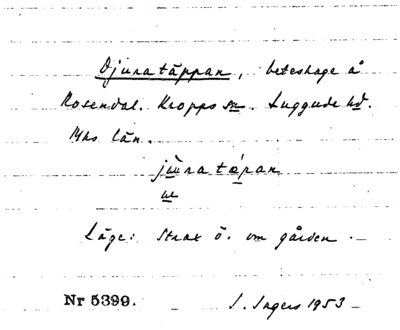 Djuratäppan, beteshage å
Rosendal. Kropps sn. Luggude hd.
Mhs län.
jɯ̀ratǽpan
ɯ
Läge: Strax ö. om gården.
Nr 5399. I. Ingers 1953